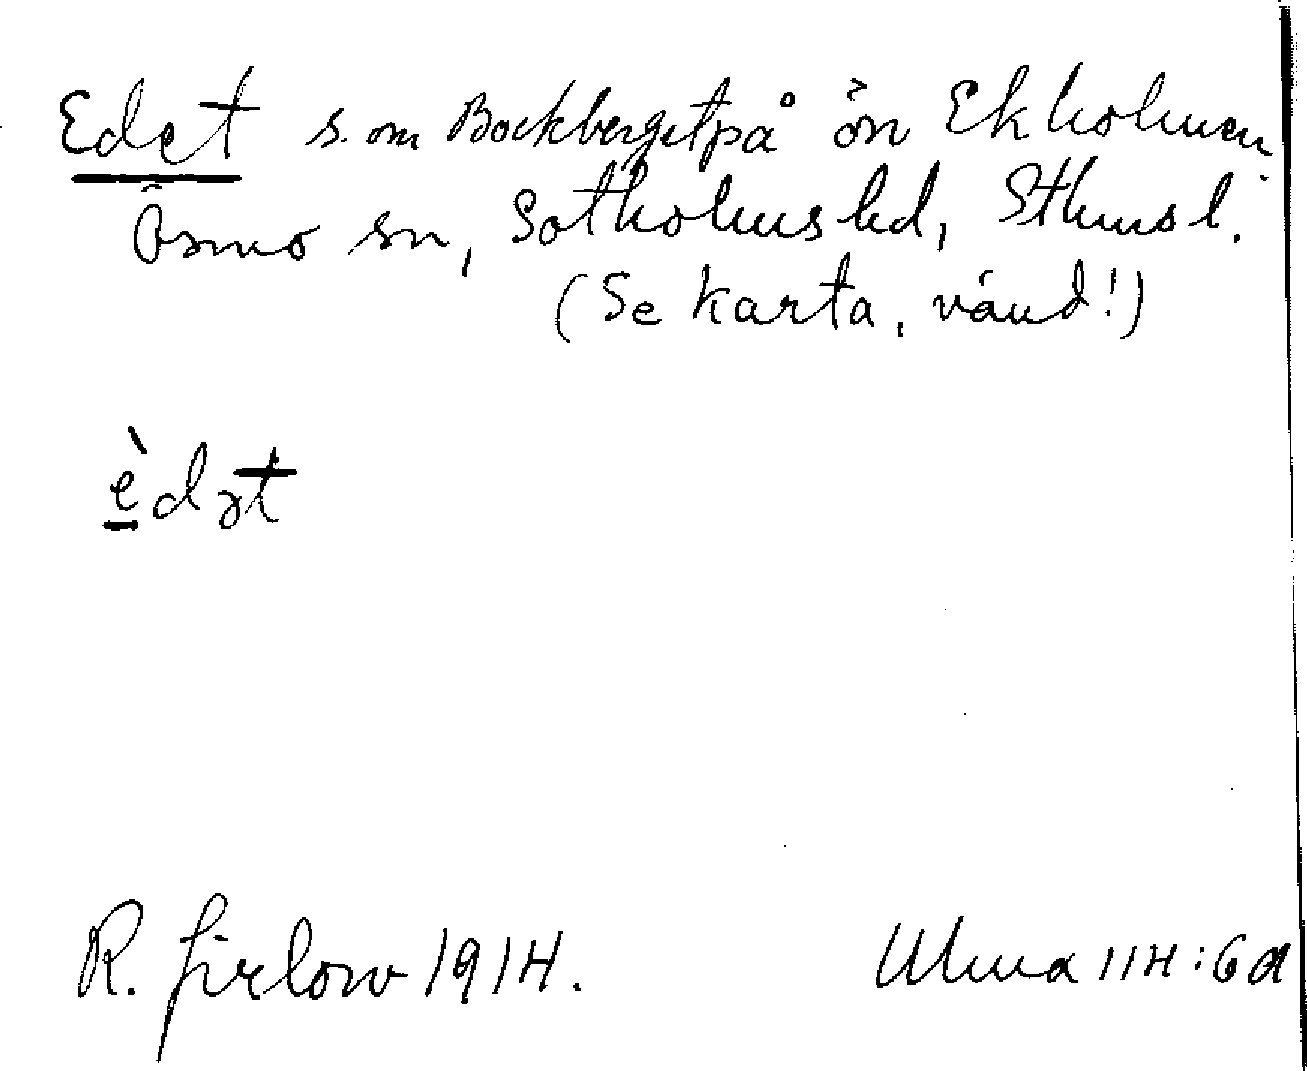 Edet s. om Bockberget på ön Ekholmen
Ösmo sn, Sotholms hd, Sthms l.
(Se karta, vänd!)
èdət
R. Jirlow 1914.
Ulma 114:6 a